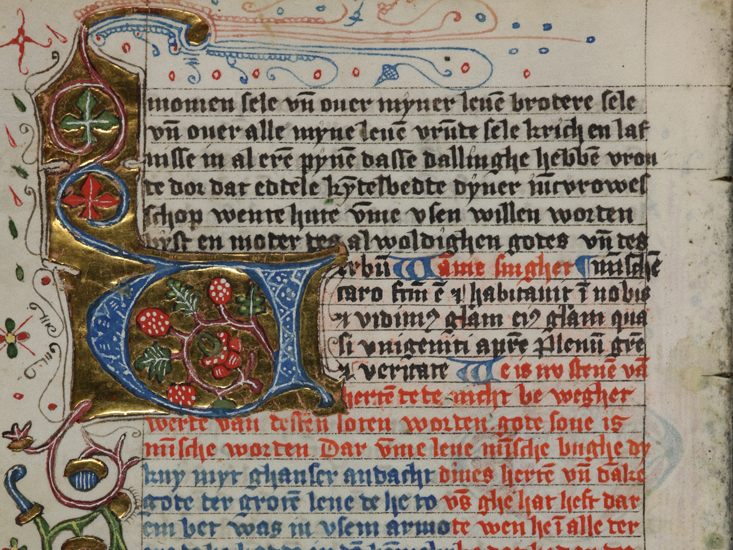 momen sele vn̄ ouer myner leuē brotere sele
vn̄ ouer alle myne leuē vrūte sele krich en laf
nisse in al erē pynē dasse dallinghe hebbē vrou
te dor dat edtele kÿtesbedte dyner iūcvrowes
schop wente hute v̄me vsen willen worten
byst en moter tes alwoldighen gotes vn̄ tes
erbū Wāme singher mīsche
caro fctm ē ⁊ habitauit ī nobis
⁊ vidimꝰ glām eiꝰ glām qua
si vnigeniti apr̄e Plenū grē
⁊ veritate We is nv stenē vn̄
hertē te te nicht be wegher
werte van dessēn soten worten gote sone is
mīsche worten Dar v̄me leue mīsche bughe dy
kny myt ghanser andacht dines hertē vn̄ dāke
gote ter grotē leue te he to vs̄ ghe hat heft dar
em ber was in vsem armote wen he ī alle ter